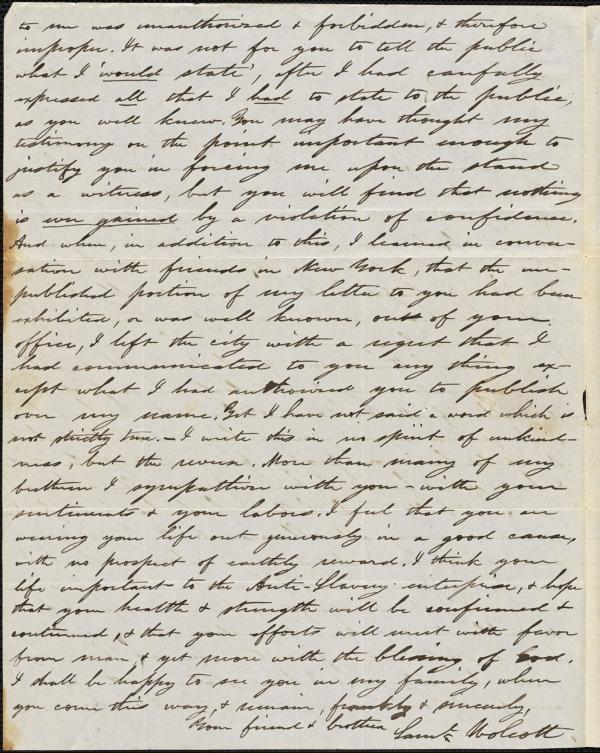 to me was unauthorized & forbidden, & therefore
improper. It was not for you to tell the public
what I 'would state', after I had carefully
expressed all that I had to state to the public,
as you well knew. You may have thought my
testimony on the point important enough to
justify you in forcing me upon the stand
as a witness, but you will find that nothing
is ever gained by a violation of confidence.
And when, in addition to this, I learned in conver-
sation with friends in New York, that the un-
published portion of my letter to you had been
exhibited, or was well known, out of your
office, I left the city with a regret that I
had communicated to you any thing ex-
cept what I had authorized you to publish
over my name. Yet I have not said a word which is
not strictly true. – I write this in no spirit of unkind-
ness, but the reverse. More than many of my
brethren I sympathize with you – with your
sentiments & your labors. I feel that you are
wearing your life out generously in a good cause,
with no prospect of earthly reward. I think your
life important to the Anti-Slavery enterprise, & hope
that your health & strength will be confirmed &
continued, & that your efforts will meet with favor
from man, & yet more with the blessing of God.
I shall be happy to see you in my family, when
you come this way, & remain, frankly & sincerely,
Your friend & brother
Saml. Wolcott